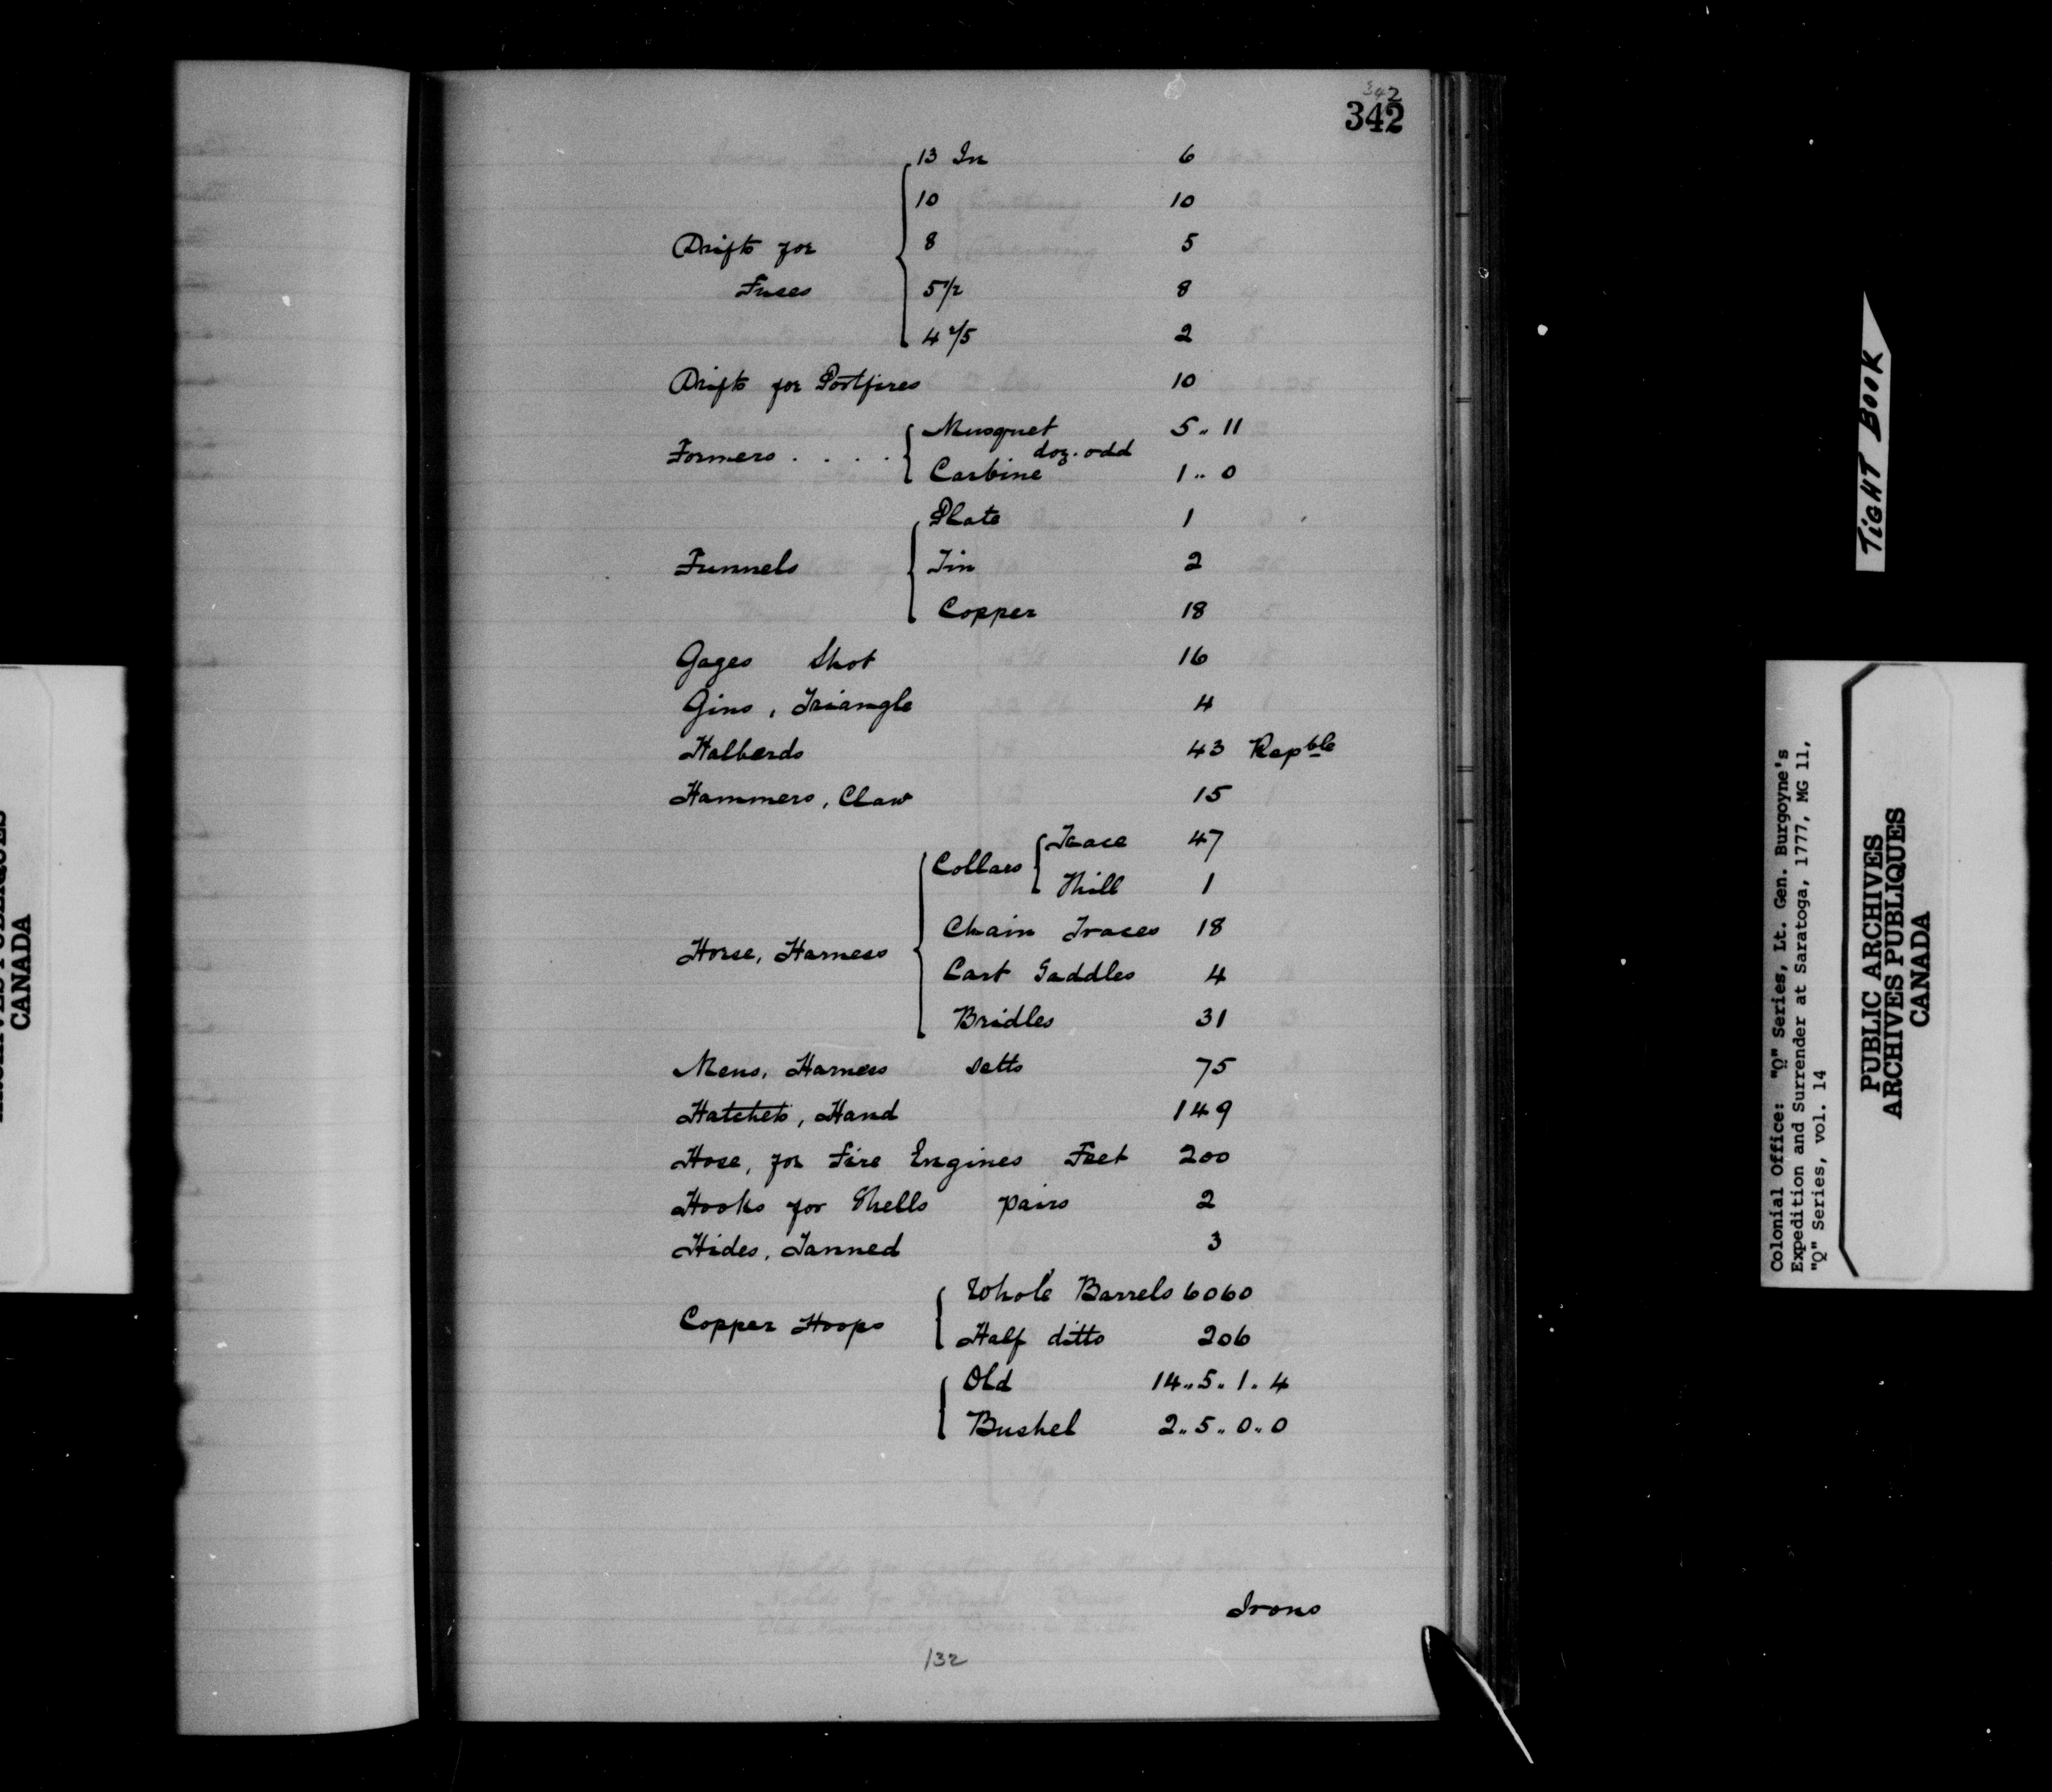 342
342
13 In 6
10 10
Drifts for 8 5
Fuses 5 1/2 8
4 2/5 2
Drifts for Portfires 10
Musquet 5.. 11
Formers . . . . doz. odd
Carbine 1.. 0
Plate 1
Funnels Tin 2
Copper 18
Gages Shot 16
Gins, Triangle 4
Halberds 43 Rapble
Hammers, Claw 15
Collars Trace 47
Thill 1
Chain Traces 18
Horse, Harness
Cart Saddles 4
Bridles 31
Mens, Harness Setts 75
Hatchets, Hand 149
Hose, for Fire Engines Feet 200
Hooks for Shells pairs 2
Hides, Tanned 3
Whole Barrels 6060
Copper Hoops
Half ditto 206
Old 14.. 5.. 1. 4
Bushel 2.. 5.. 0.. 0
Irons
132
TIGHT BOOK
Colonial Office: "Q" Series, Lt. Gen. Burgoyne's
Expedition and Surrender at Saratoga, 1777, MG 11,
"Q" Series, vol. 14
PUBLIC ARCHIVES
ARCHIVES PUBLIQUES
CANADA
CANADA